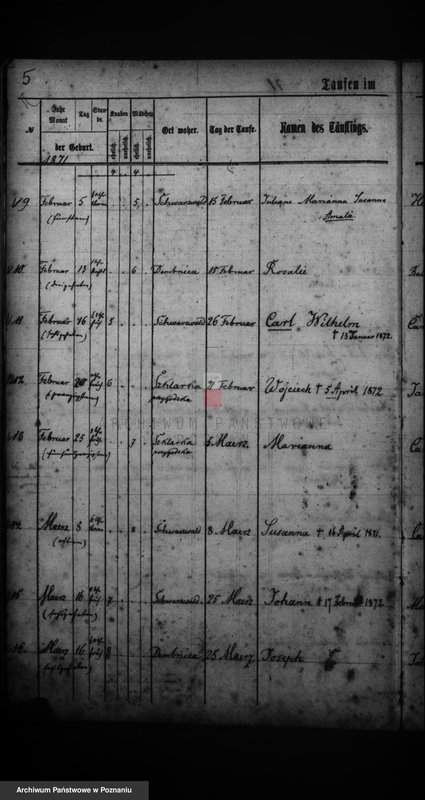 5
Taufen im
№
Jahr
Monat
Tag
Stunde.
der Geburt.
Knaben
Mädchen
ehelich.
unehelich.
ehelich.
unehelich.
Ort woher.
Tag der Taufe.
Namen des Täuflings.
1871
4 4
9 Februar 5 5 Schwarzwald 15 Februar Juliane Marianna Susanna
Amalie
10. Februar 13 6 Dembnica 15 Februar Rosalie
11 Februar 16 5 Schwarzwald 26 Februar Carl Wilhelm
† 13 Januar 1872.
12 Februar 6 Szklarka Februar Wojciech † 5 April 1872
przygodzka
13 Februar 25 7 Szklarka 5 Maerz. Marianna
przygodzka
ARCHIWUM PAŃSTWOWE
14. Maerz 8 8 Schwarzwald 8 Maerz Susanna † 16 April 1871.
15 Maerz 16 7 Schwarzwald 25 Maerz Johann † 17 Februar 1872
16. Maerz 16 8 Dembnica 25 Maerz Joseph
Archiwum Państwowe w Poznaniu